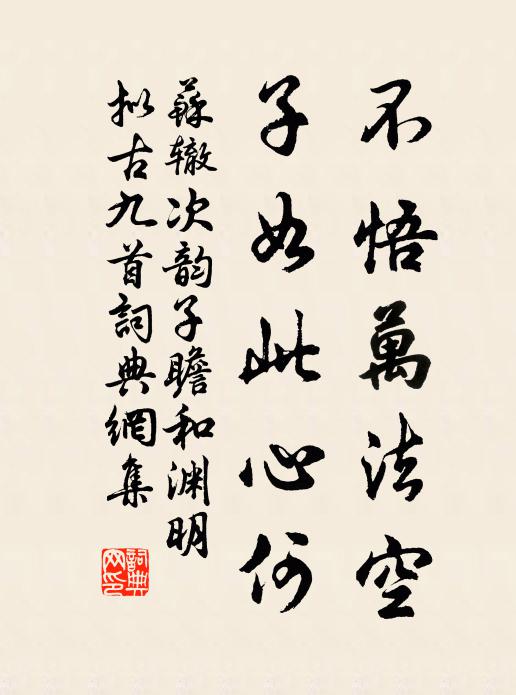 不悟萬法空
子如此心何
蘇辙次韵子瞻和渊明
拟古九首詞典網集
詞典
网印